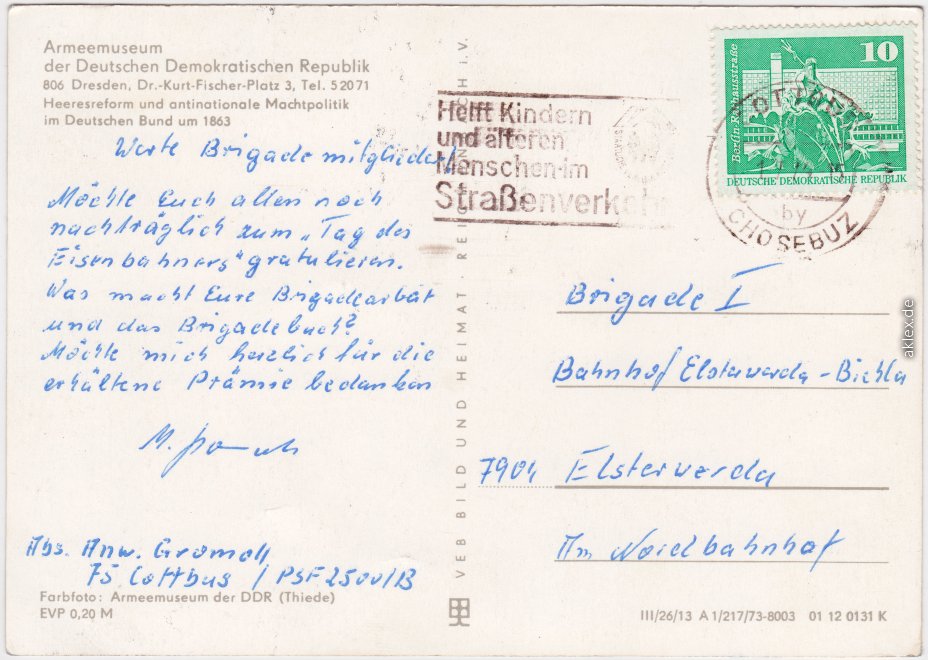 Armeemuseum
der Deutschen Demokratischen Republik
806 Dresden, Dr.-Kurt-Fischer-Platz 3, Tel. 52071
Heeresreform und antinationale Machtpolitik
im Deutschen Bund um 1863
Werte Brigademitglieder!
Möchte Euch allen noch
nachträglich zum „Tag des
Eisenbahners" gratulieren.
Was macht Eure Brigadearbeit
und das Brigadebuch?
Möchte mich herzlich für die
erhaltene Prämie bedanken
M.
Abs. Anw. Gromoll
75 Cottbus / PSF 2500/B
Farbfoto: Armeemuseum der DDR (Thiede)
EVP 0,20 M
VEB BILD UND HEIMAT REICHENBACH i. V.
Helft Kindern
und älteren
Menschen im
Straßenverkehr
10
Berlin-Rathausstraße
DEUTSCHE DEMOKRATISCHE REPUBLIK
COTTBUS
by
CHOSEBUZ
Brigade I
Bahnhof Elsterwerda-Biehla
7904 Elsterwerda
Am Nordbahnhof
III/26/13 A 1/217/73-8003 01 12 0131 K
aklex.de